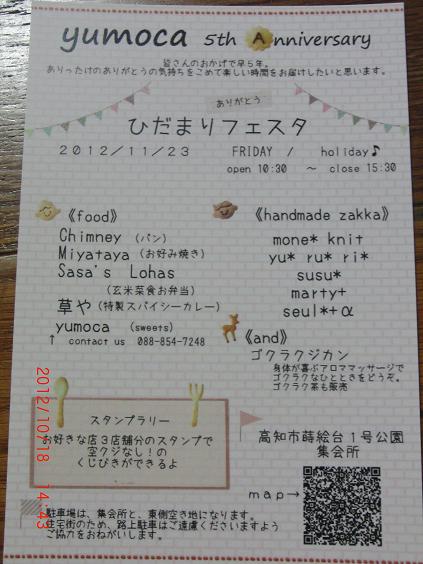 yumoca 5th Anniversary
皆さんのおかげで早５年。
ありったけのありがとうの気持ちをこめて楽しい時間をお届けしたいと思います。
ありがとう
ひだまりフェスタ
２０１２／１１／２３ FRIDAY / holiday♪
open 10:30 ～ close 15:30
《food》
Chimney (パン)
Miyataya (お好み焼き)
Sasa's Lohas
(玄米菜食お弁当)
草や (特製スパイシーカレー)
yumoca (sweets)
↑ contact us 088-854-7248
《handmade zakka》
mone* knit
yu* ru* ri*
susu*
marty+
seul*+α
《and》
ゴクラクジカン
身体が喜ぶアロママッサージで
ゴクラクなひとときをどうぞ。
ゴクラク茶も販売
スタンプラリー
お好きな店３店舗分のスタンプで
空クジなし！の
くじびきができるよ
高知市蒔絵台１号公園
集会所
ｍａｐ→
駐車場は、集会所と、東側空き地になります。
住宅街のため、路上駐車はご遠慮くださいますよう
ご協力をおねがいします。
2012/10/18 14:43